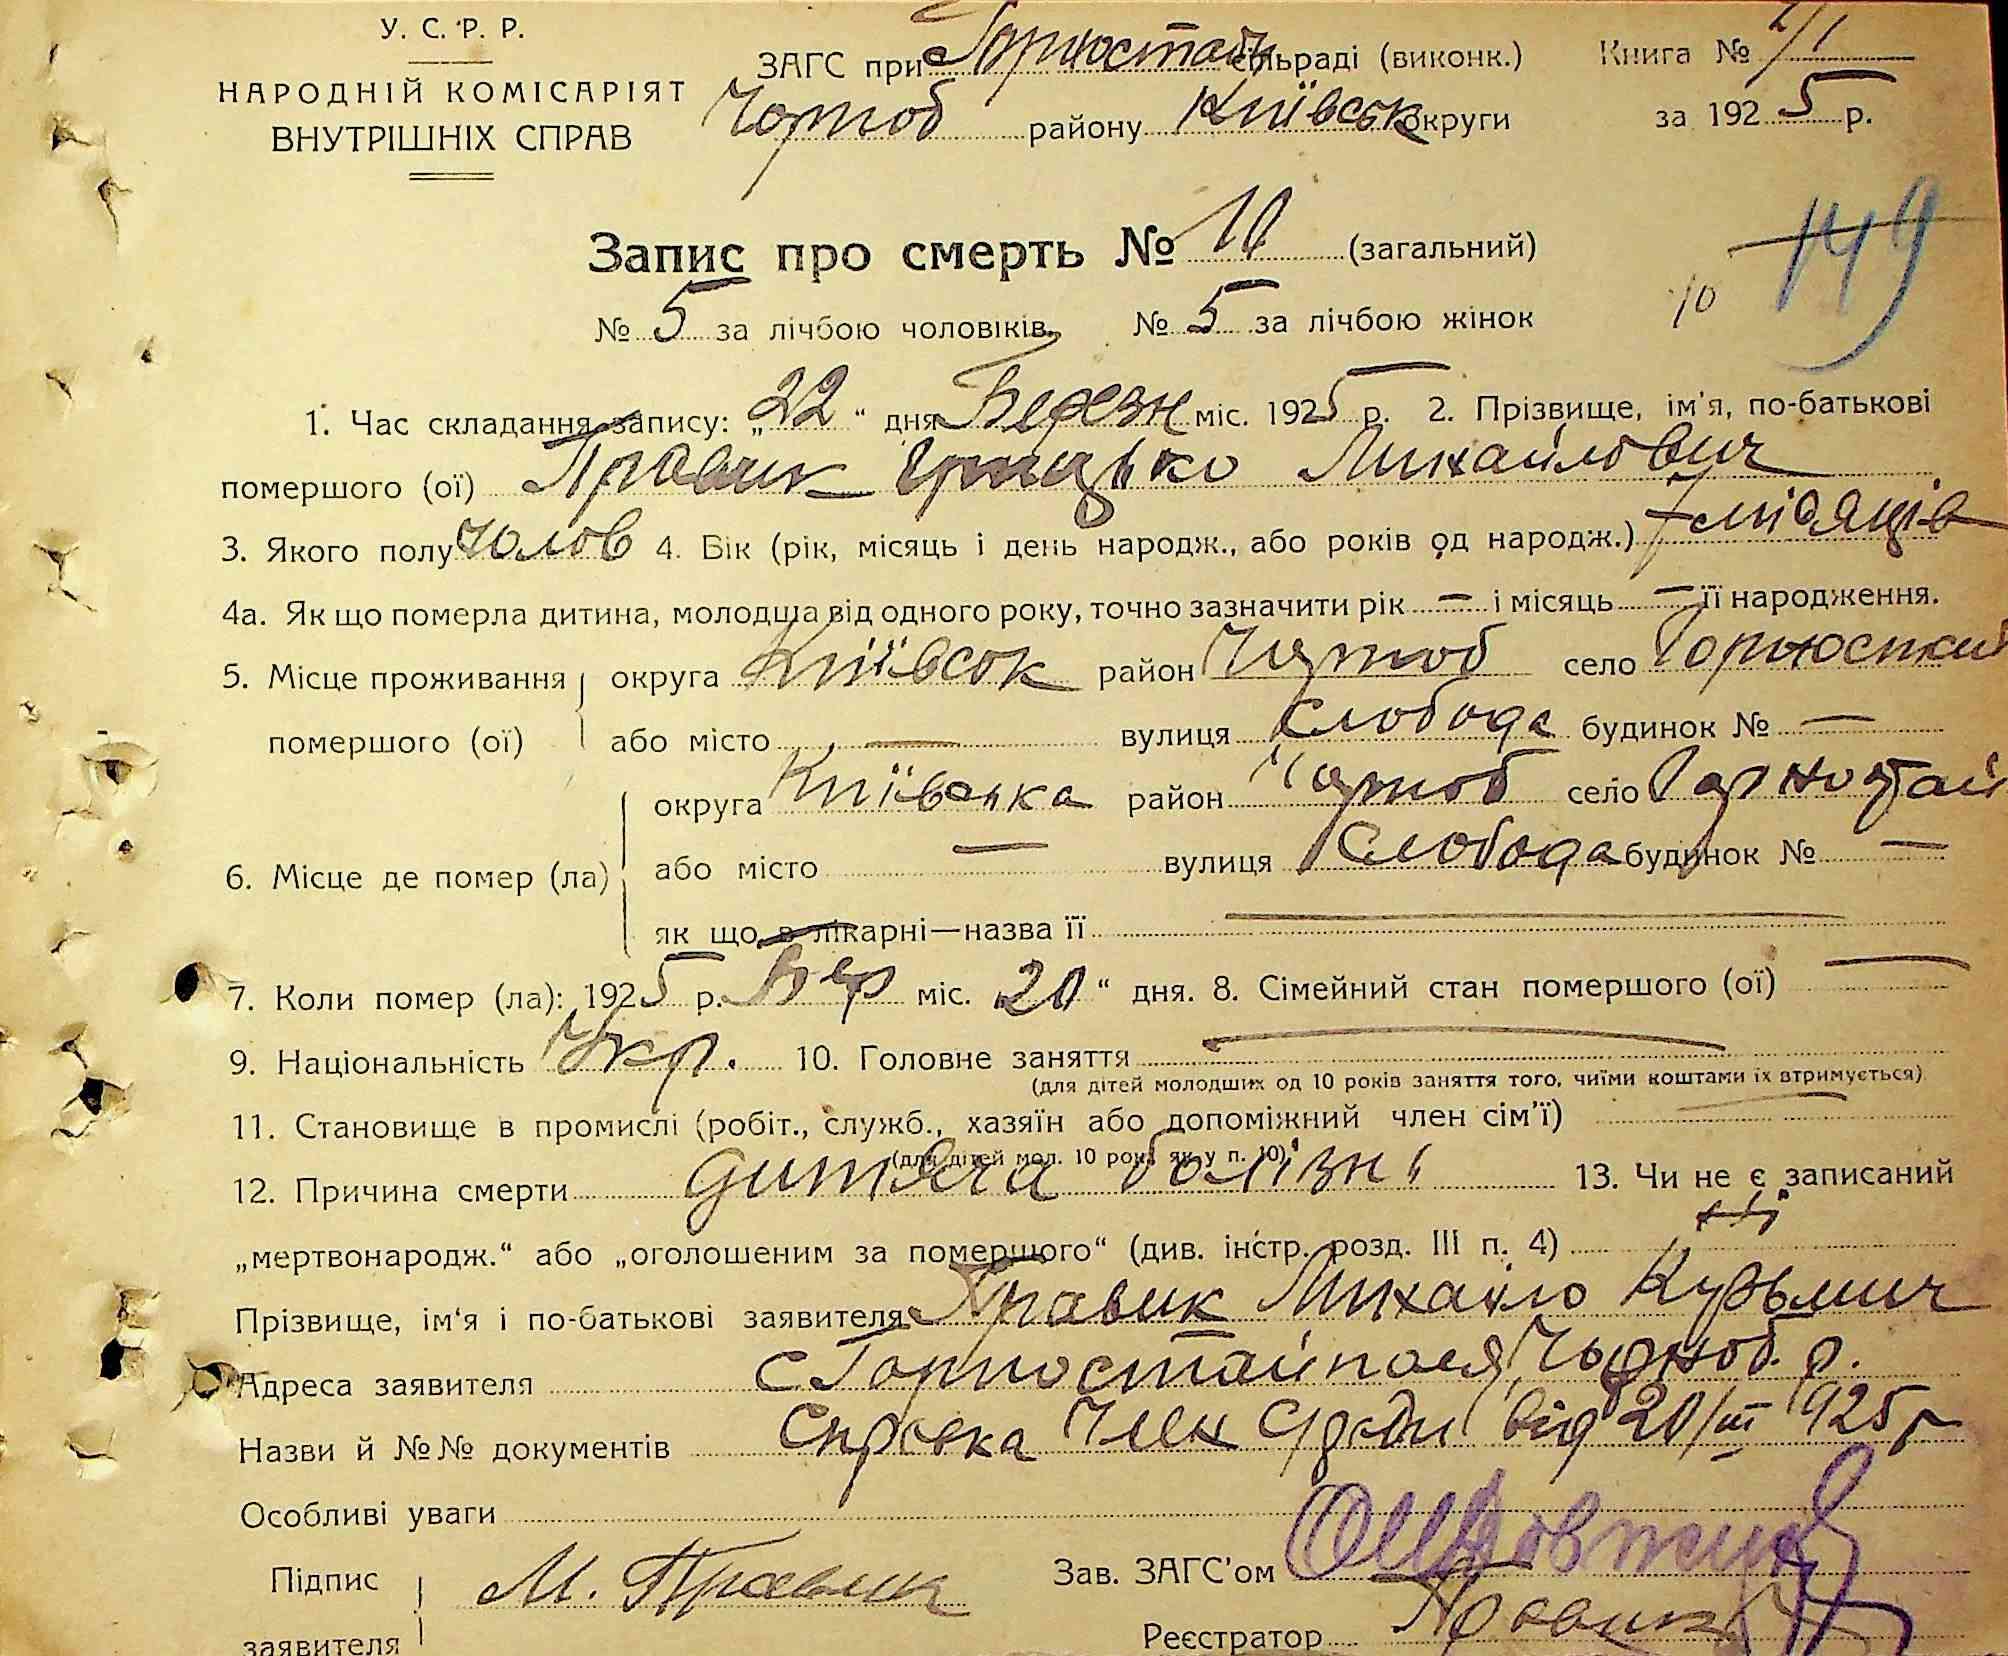 У. С. Р. Р.
НАРОДНІЙ КОМІСАРІЯТ
ВНУТРІШНІХ СПРАВ
ЗАГС при Горностай сільраді (виконк.)
Чорноб району Київськ округи
Книга №
за 1925 р.
Запис про смерть № 10 (загальний)
149
10
№ 5 за лічбою чоловіків, № 5 за лічбою жінок
1. Час складання запису: „22“ дня Березн міс. 1925 р. 2. Прізвище, ім'я, по-батькові
помершого (ої) Правик Грицько Михайлович
3. Якого полу Чолов 4. Вік (рік, місяць і день народж., або років од народж.) 7 місяців
4а. Як що померла дитина, молодша від одного року, точно зазначити рік — і місяць — її народження.
5. Місце проживання округа Київськ район Чорноб село
помершого (ої) або місто — вулиця Слобода будинок № —
округа Київська район Чорноб село Горностай
6. Місце де помер (ла) або місто — вулиця Слобода будинок № —
як що в лікарні—назва її
7. Коли помер (ла): 1925 р. Бер міс. „20“ дня. 8. Сімейний стан помершого (ої) —
9. Національність Укр. 10. Головне заняття
(для дітей молодших од 10 років заняття того, чиїми коштами їх втримується)
11. Становище в промислі (робіт., служб., хазяїн або допоміжний член сім'ї)
(для дітей мол. 10 рок. як у п. 10)
12. Причина смерти дитяча болізні 13. Чи не є записаний
„мертвонародж.“ або „оголошеним за помершого“ (див. інстр. розд. III п. 4) ні
Прізвище, ім'я і по-батькові заявителя Правик Михайло Кузьмич
Адреса заявителя с. Горностайполя, Чорноб. р.
Назви й №№ документів Справка Член С/ради від 20/III 1925 р
Особливі уваги
Підпис
заявителя М. Правик
Зав. ЗАГС'ом
Реєстратор Правик